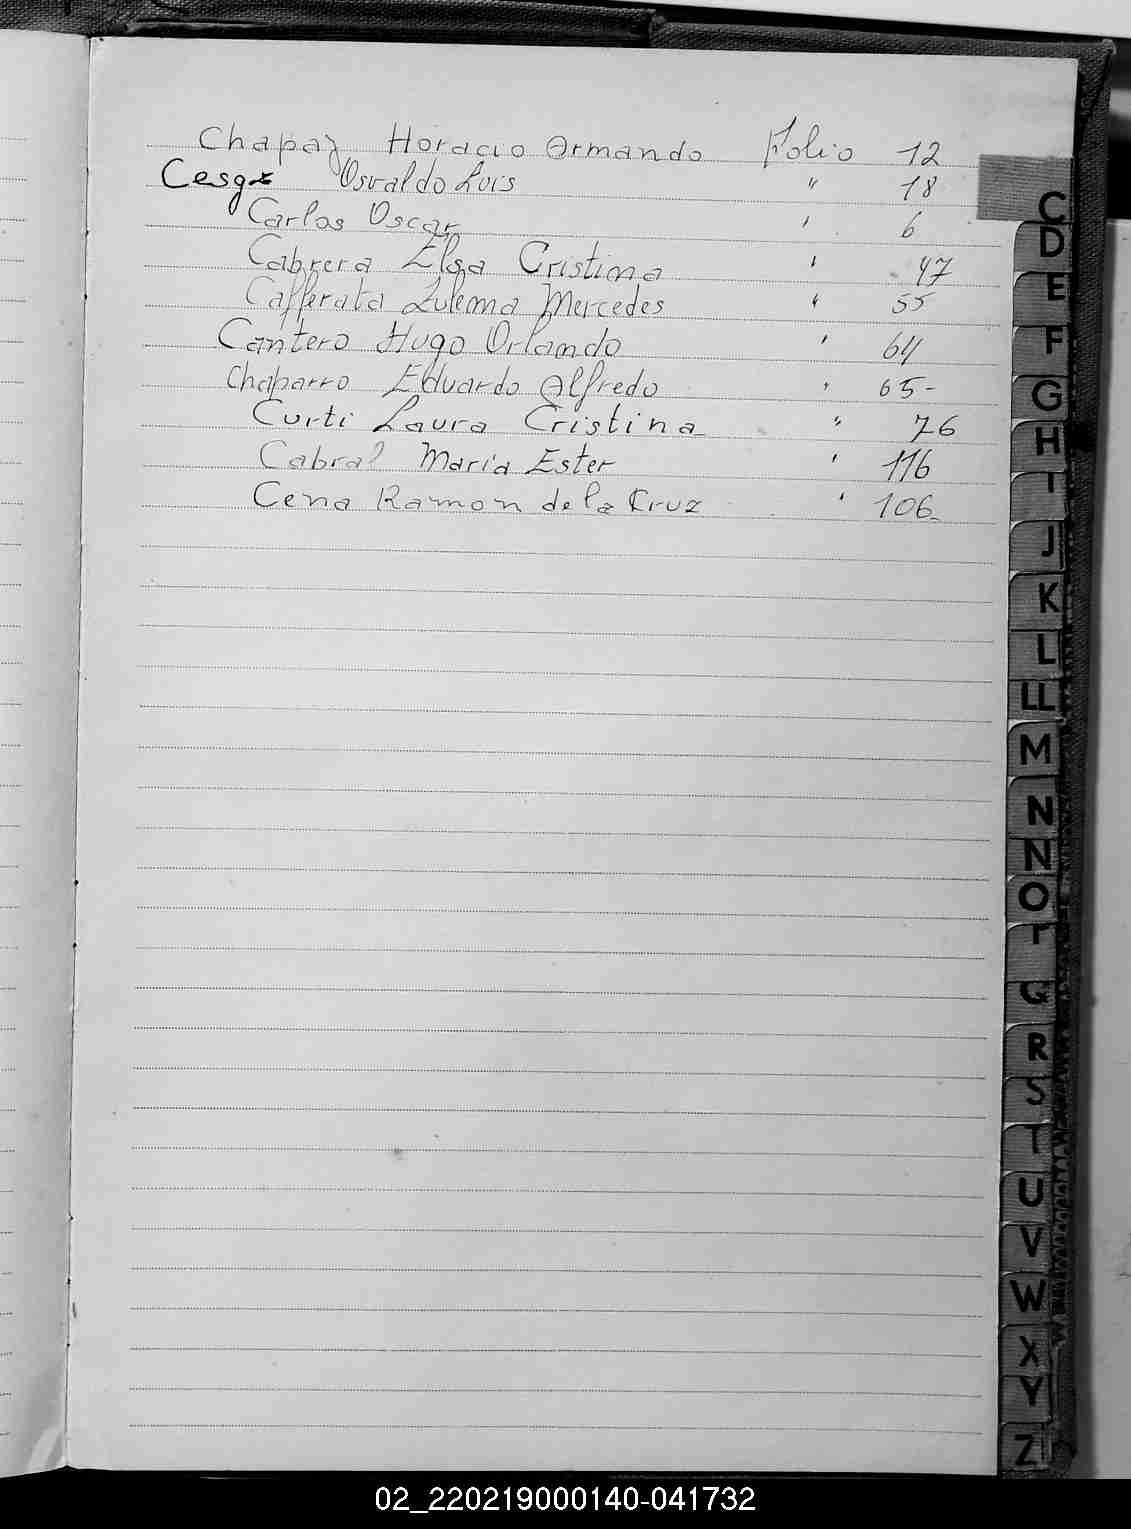 Chapaz Horacio Ormando Folio 12
Osvaldo Luis " 18
Carlos Oscar " 6
Cabrera Elsa Cristina " 47
Cafferata Zulema Mercedes " 55
Cantero Hugo Orlando " 64
Chaparro Eduardo Alfredo " 65-
Curti Laura Cristina " 76
Cabral Maria Ester " 116
Cena Ramon de la Cruz " 106-
C
D
E
F
G
H
I
J
K
L
LL
M
N
Ñ
O
Q
R
S
T
U
V
W
X
Y
Z
02_220219000140-041732